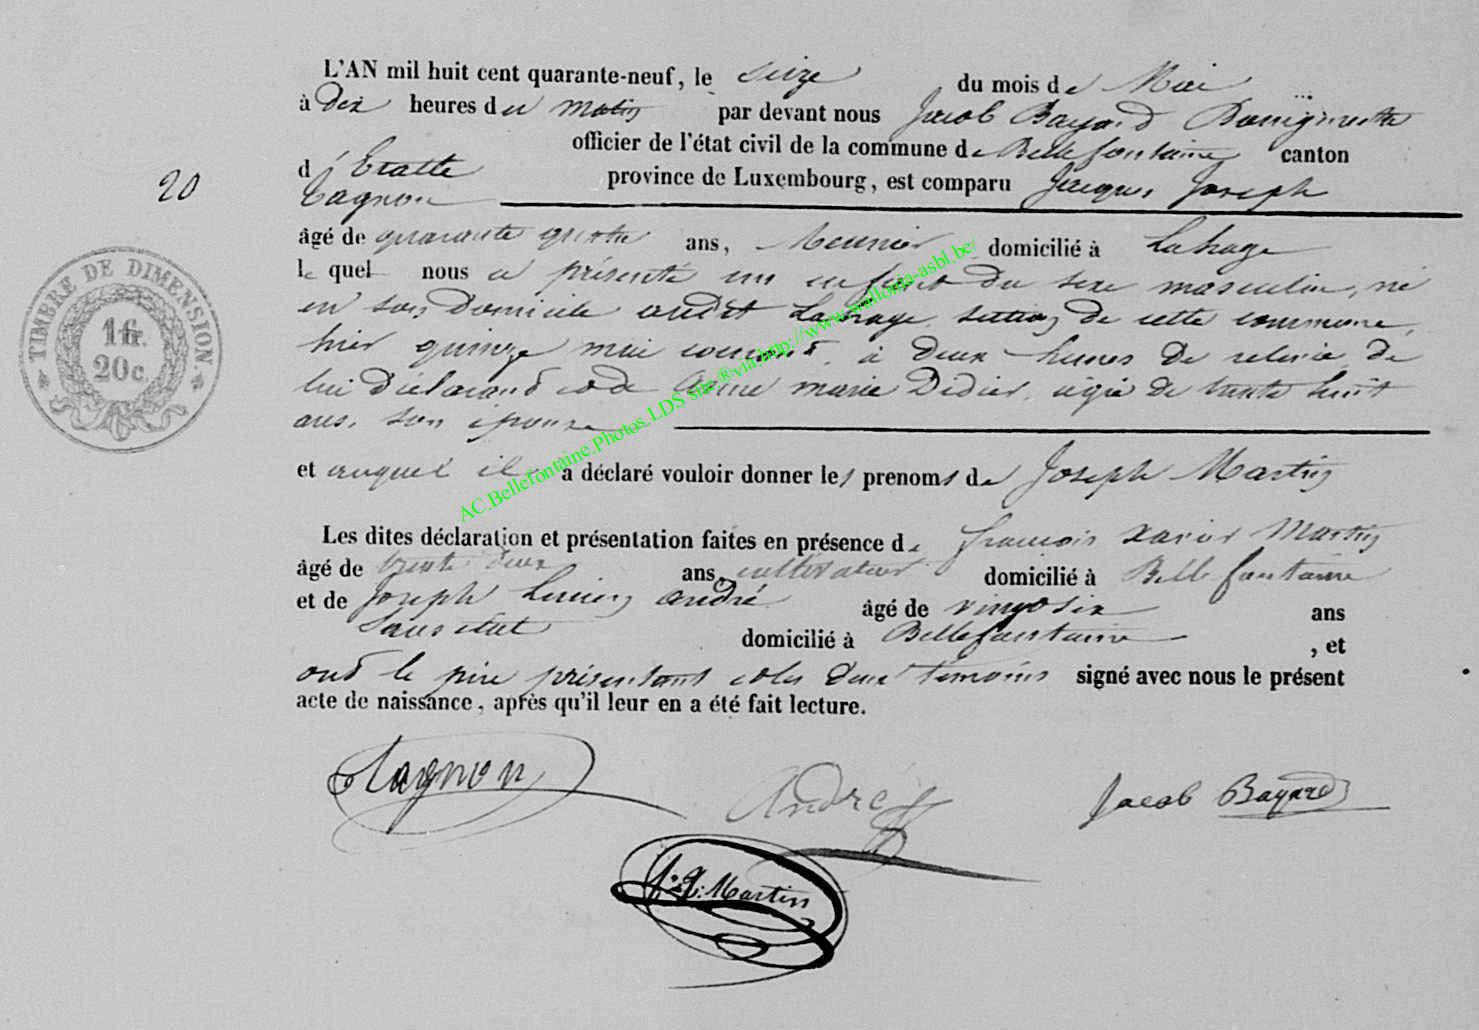 L'AN mil huit cent quarante-neuf, le seize du mois de Mai
à dix heures du matin par devant nous Jacob Bayard Bourgmestre
officier de l'état civil de la commune de Bellefontaine canton
d'Etalle province de Luxembourg, est comparu Jacques Joseph
Tagnon
20
âgé de quarante quatre ans, Meunier domicilié à Lahage
le quel nous a présenté un enfant du sexe masculin, né
en son Domicile audit Lahage, section de cette commune,
hier quinze mai courant, à deux heures de relevée, de
lui déclarant et de Anne marie Didier, agée de trente huit
ans, son épouse
et auquel il a déclaré vouloir donner les prenoms de Joseph Martin
Les dites déclaration et présentation faites en présence de francois xavier Martin
âgé de trente deux ans, cultivateur domicilié à Bellefontaine
et de Joseph Lucien andré âgé de vingt six ans
Sans etat domicilié à Bellefontaine , et
ont le père présentant et les deux temoins signé avec nous le présent
acte de naissance, après qu'il leur en a été fait lecture.
Tagnon
André
Jacob Bayard
f: x: Martin
TIMBRE DE DIMENSION.
1 fr.
20 c.
AC.Bellefontaine.Photos.LDS site ®via:http://www.wallonia-asbl.be/